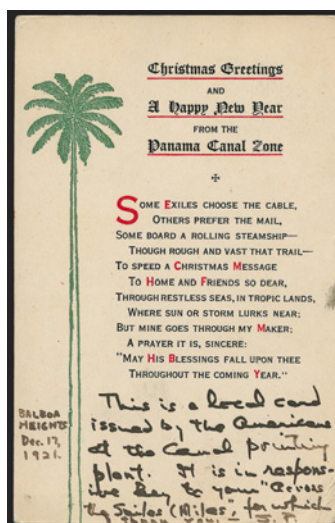 Christmas Greetings
AND
A Happy New Year
FROM THE
Panama Canal Zone
SOME EXILES CHOOSE THE CABLE,
OTHERS PREFER THE MAIL,
SOME BOARD A ROLLING STEAMSHIP—
THOUGH ROUGH AND VAST THAT TRAIL—
TO SPEED A CHRISTMAS MESSAGE
TO HOME AND FRIENDS SO DEAR,
THROUGH RESTLESS SEAS, IN TROPIC LANDS,
WHERE SUN OR STORM LURKS NEAR;
BUT MINE GOES THROUGH MY MAKER;
A PRAYER IT IS, SINCERE:
"MAY HIS BLESSINGS FALL UPON THEE
THROUGHOUT THE COMING YEAR."
BALBOA
HEIGHTS
Dec. 17,
1921.
This is a local card
issued by the Americans
at the Canal printing
plant. It is in respons-
ive key to your "Across
the Smiles (Miles", for which